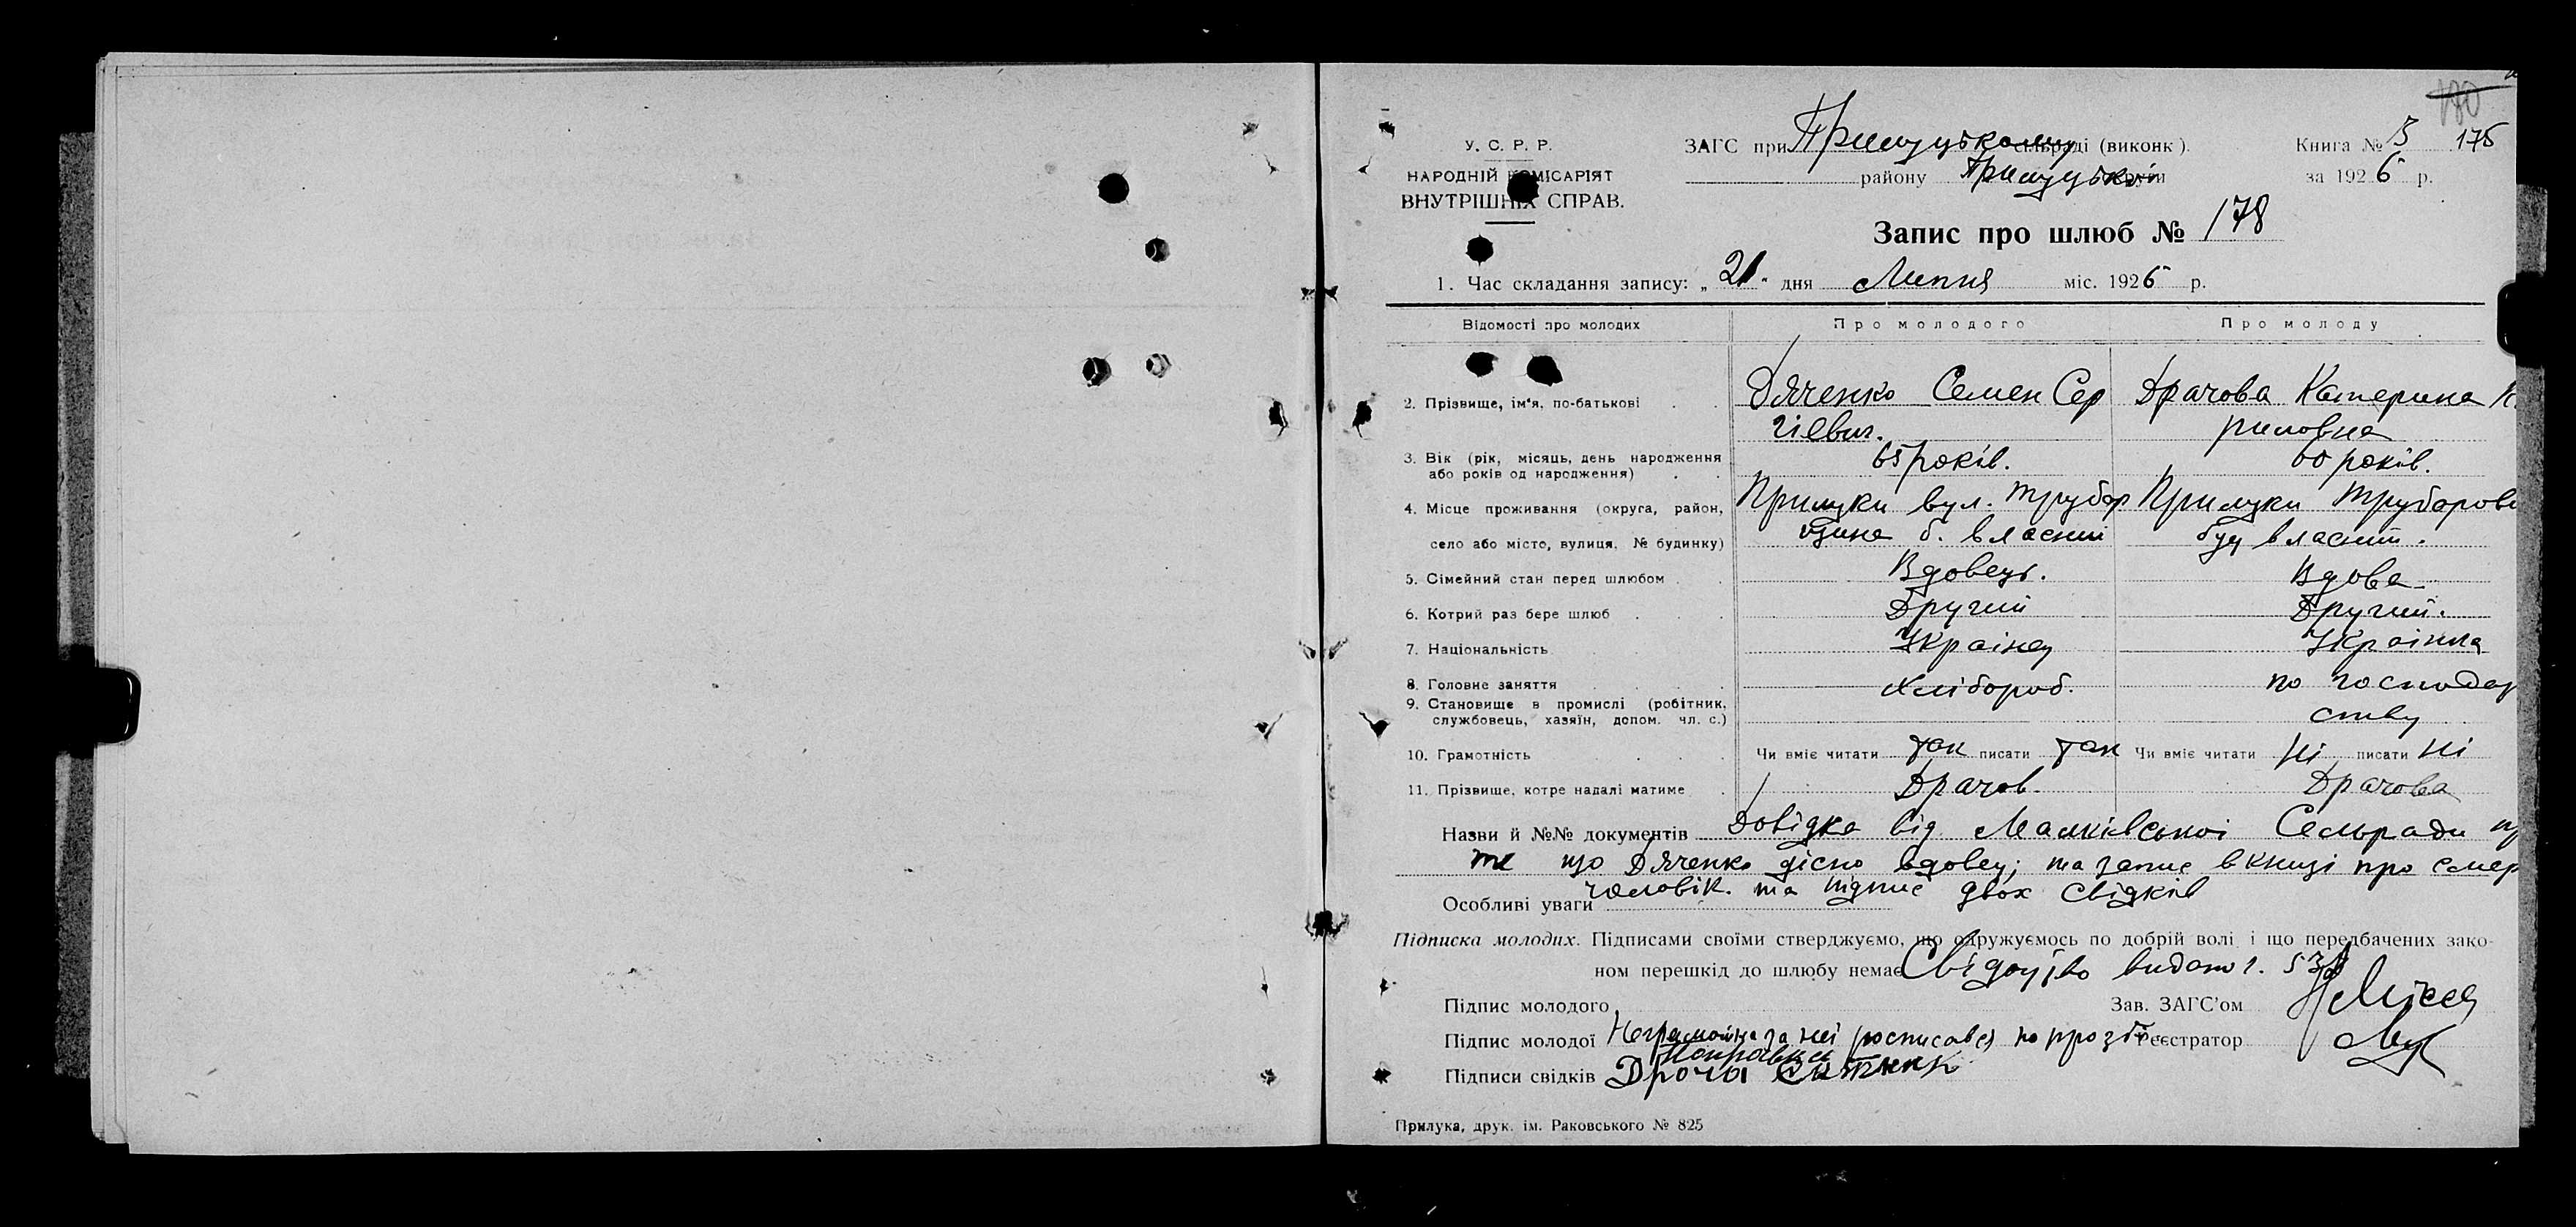 180
У. С. Р. Р.
НАРОДНІЙ КОМІСАРІЯТ
ВНУТРІШНІХ СПРАВ.
ЗАГС при Прилуцькому сільраді (виконк).
району Прилуцької округи
Книга № 3 175
за 1926 р.
Запис про шлюб № 178
1. Час складання запису: „21" дня Липня міс. 1926 р.
Відомості про молодих Про молодого Про молоду
2. Прізвище, ім'я, по-батькові Дяченко Семен Сер Драчова Катерина К
гіевич. риловна
3. Вік (рік, місяць, день народження 65 років. 60 років.
або років од народження)
4. Місце проживання (округа, район, Прилуки вул. Трубор Прилуки Трубаров
село або місто, вулиця, № будинку) щина б. власний буд власний.
5. Сімейний стан перед шлюбом Вдовець. Вдова
6. Котрий раз бере шлюб Другий Другий.
7. Національність Украінец Украінка
8. Головне заняття Хлібороб. по господар
9. Становище в промислі (робітник, ству
службовець, хазяїн, допом. чл. с.)
10. Грамотність Чи вміє читати так писати так Чи вміє читати ні писати ні
11. Прізвище, котре надалі матиме Драчов. Драчова
Назви й №№ документів Довідка від Малківськоі Сельради пр
те що Дяченко дісно вдовец; та запис в книзі про смер
чоловік. та підпис двох свідків
Особливі уваги
Підписка молодих. Підписами своїми стверджуємо, що одружуємось по добрій волі і що передбачених зако-
ном перешкід до шлюбу немає Свідоцтво видано г.
Підпис молодого Зав. ЗАГС'ом
Підпис молодої Неграмотна за неі росписався по прозбі Реєстратор
Підписи свідків
Прилука, друк. ім. Раковського № 825